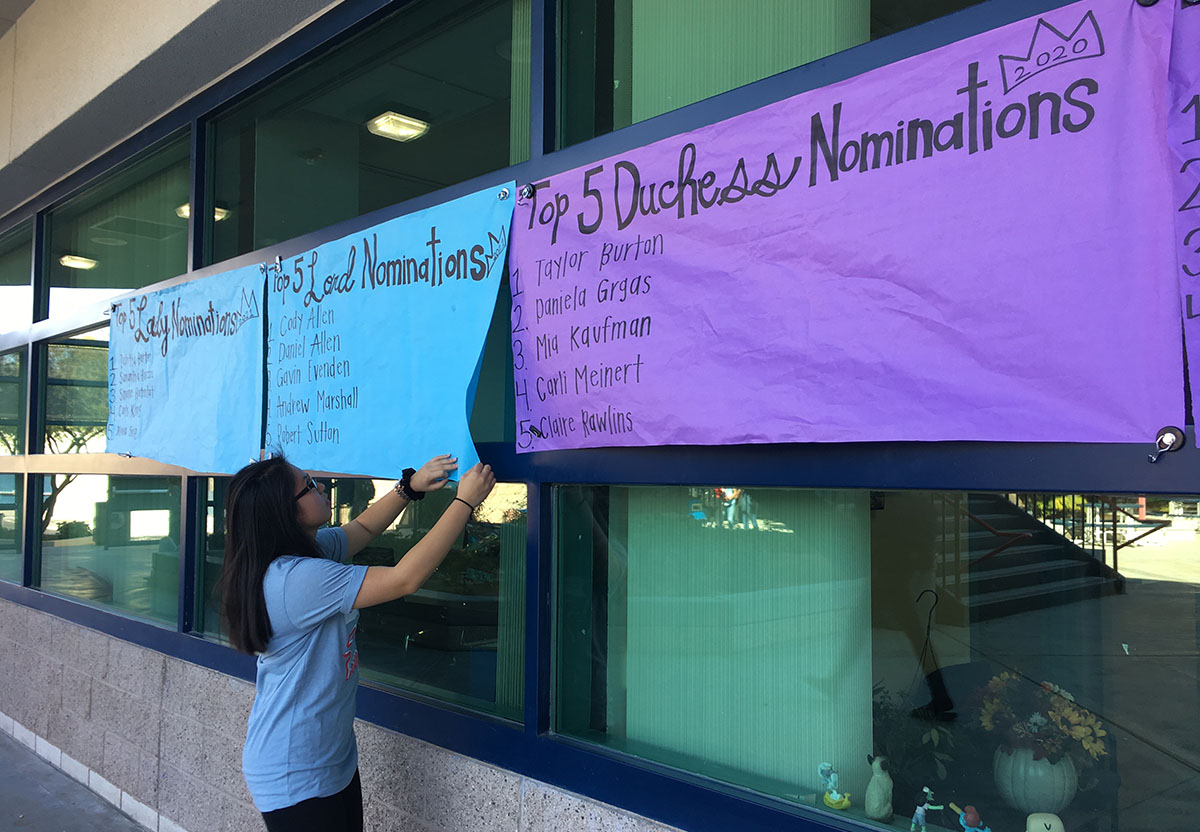 Top 5 Lady Nominations
1
2
3
4
5
Top 5 Lord Nominations
Cody Allen
Daniel Allen
Gavin Evenden
Andrew Marshall
Robert Sutton
2020
Top 5 Duchess Nominations
1. Taylor Burton
2. Daniela Grgas
3. Mia Kaufman
4. Carli Meinert
5. Claire Rawlins
1
2
3